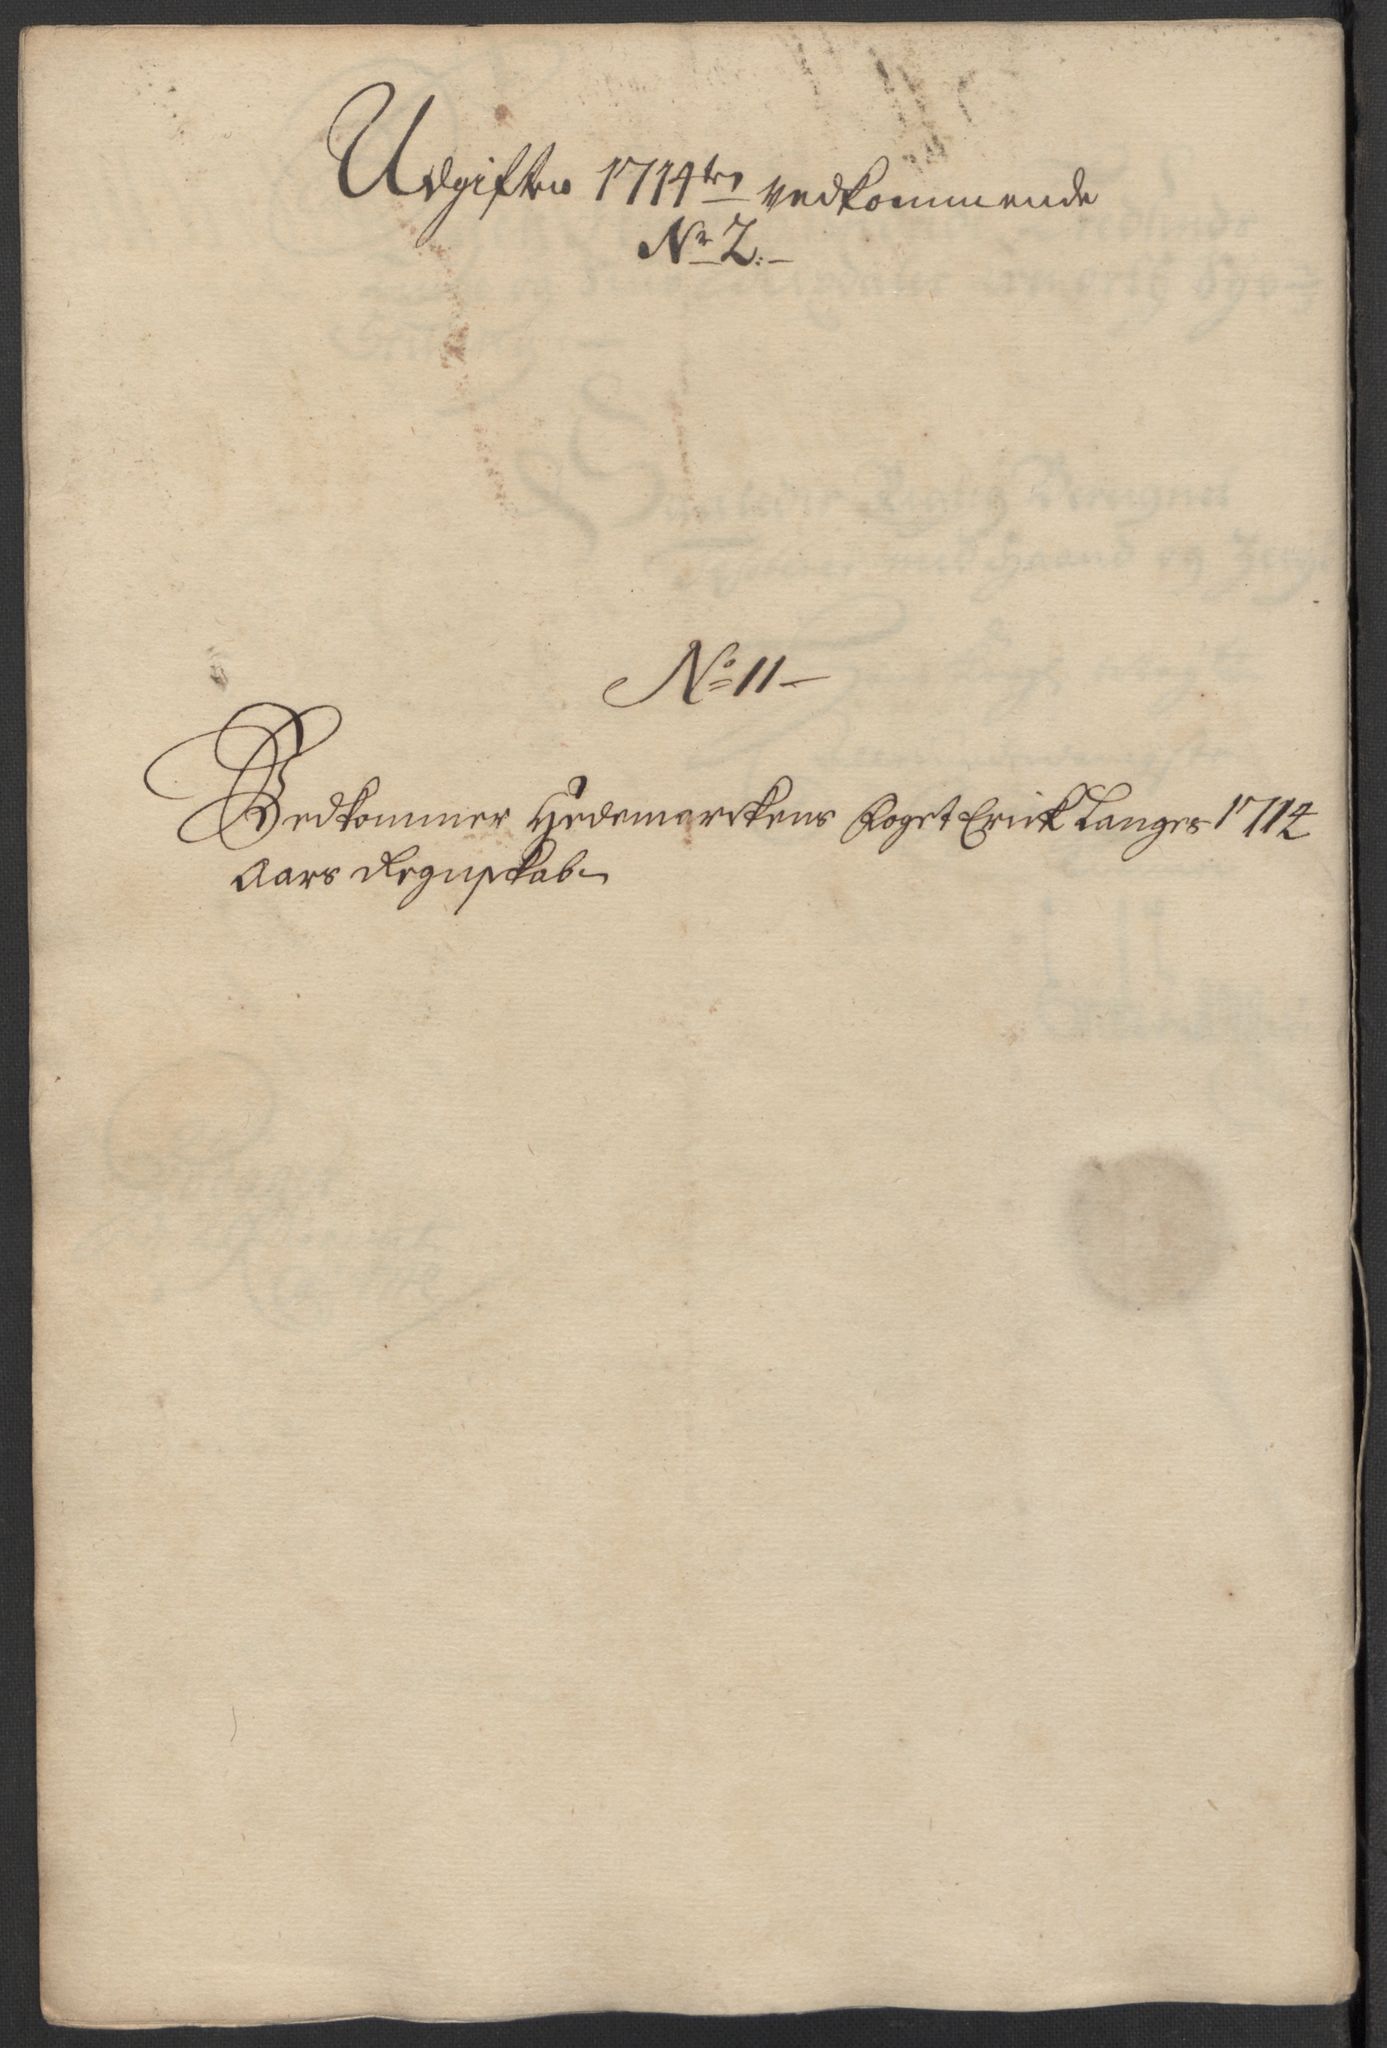 Udgiften 1714tes vedkommende
Nr 2.
No 11
Vedkommer Hedemarckens Foget Erick Langes 1714
Aars Regnskab